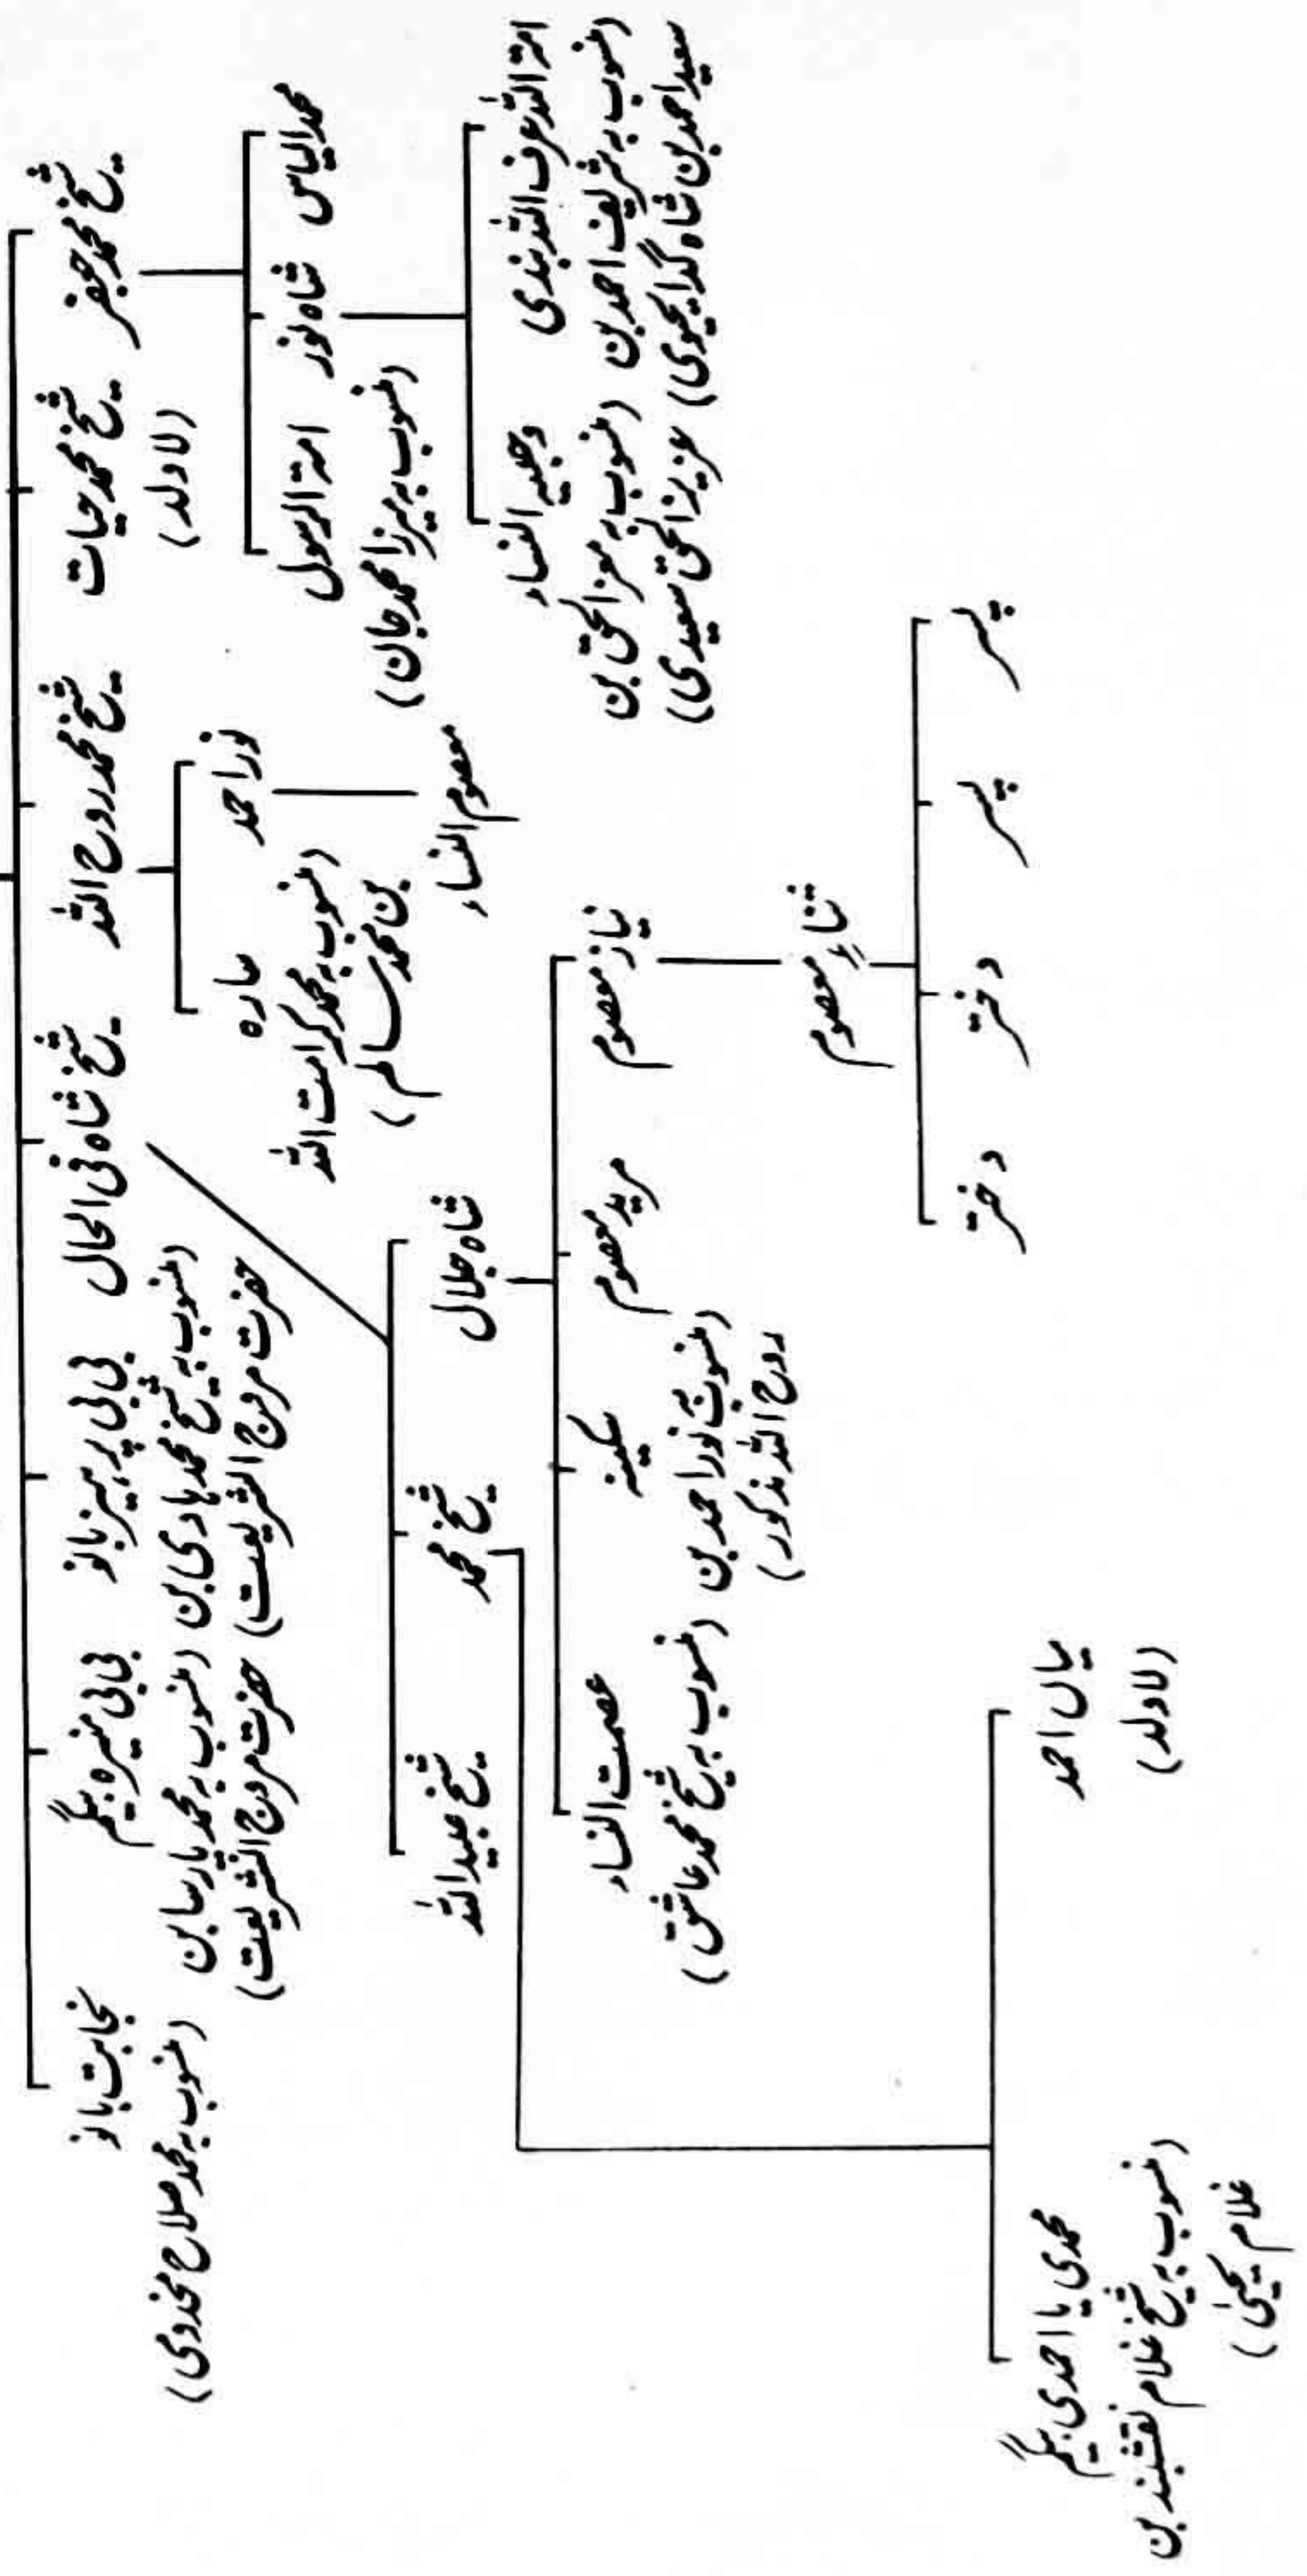 شیخ محمد جعفر
شیخ محمد حیات
(لاولد)
شیخ محمد روح اللہ
شیخ شاہ فی الحال
بی بی پرہیز بانو
(منسوب بہ شیخ محمد ہادی بن
حضرت مروج الشریعت)
بی بی منیرہ بیگم
(منسوب بہ محمد پارسا بن
حضرت مروج الشریعت)
نجابت بانو
(منسوب بہ محمد صلاح مخدومی)
محمد الیاس
شاہ نور
امۃ الرسول
(منسوب بہ میرزا محمد جان)
نور احمد
سارہ
(منسوب بہ محمد کرامت اللہ
بن محمد سالم)
امۃ اللہ عرف اللہ بندی
(منسوب بہ شریف احمد بن
سعید احمد بن شاہ گدا یحیوی)
وجیہ النساء
(منسوب بہ معز الحق بن
عزیز الحق سعیدی)
معصوم النساء
شاہ جلال
شیخ محمد
شیخ عبید اللہ
نیاز معصوم
مرید معصوم
سکینہ
(منسوب بہ نور احمد بن
روح اللہ مذکور)
عصمت النساء
(منسوب بہ شیخ محمد عاشق)
ثناءِ معصوم
پسر
پسر
دختر
دختر
میاں احمد
(لاولد)
محمدی یا احمدی بیگم
(منسوب بہ شیخ غلام نقشبند بن
غلام یحییٰ)